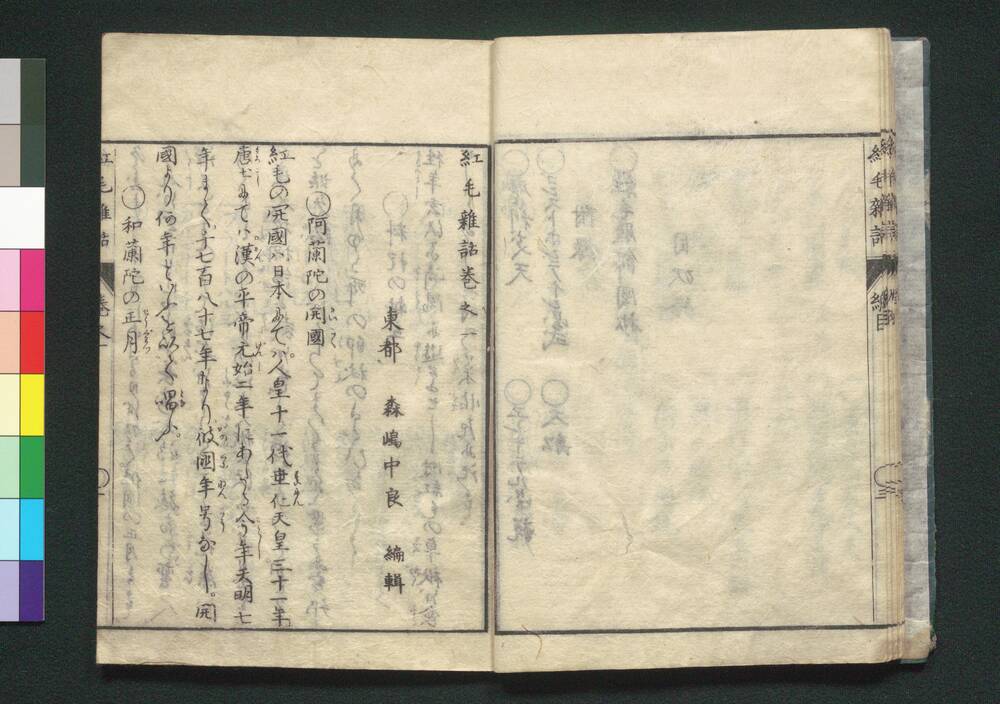 紅毛雜話
總目
紅毛雜話巻之一
東都　森嶋中良　編輯
○阿蘭陀の開國
紅毛の開國ハ日本にてハ人皇十一代垂仁天皇三十一年
唐土にてハ漢の平帝元始二年にあたる今年天明七
年まで千七百八十七年になり彼國年号なし。開
國より何年といふことを以て唱ふ。
○和蘭陀の正月
紅毛雜話
巻之一